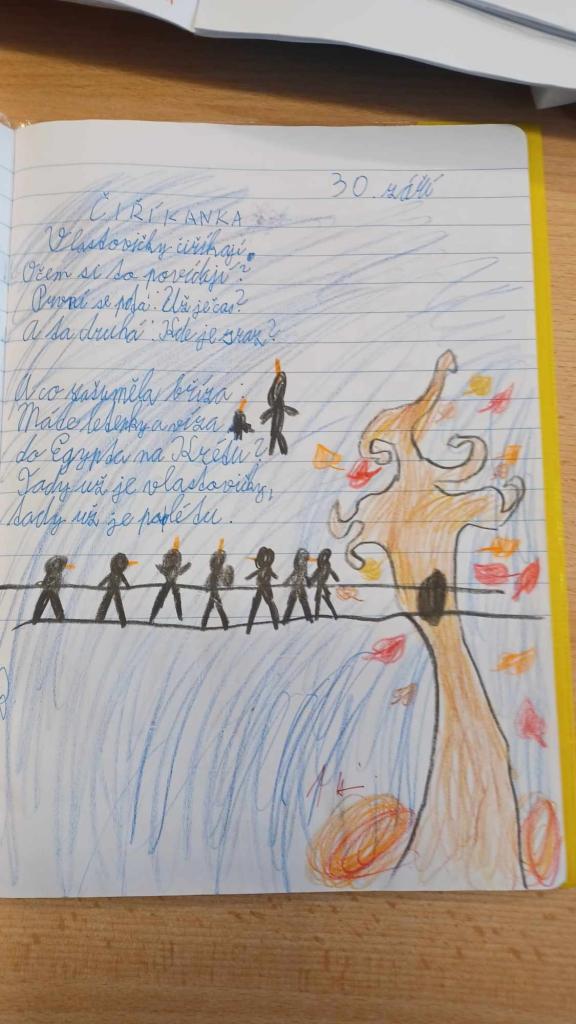 30. září
ČIŘÍKANKA
Vlaštovičky čiříkají.
Očem si to povídají?
První se ptá: Už je čas?
A ta druhá: Kde je sraz?
A co zašuměla bříza:
Máte letenky a víza
do Egypta na Krétu?
Tady už je vlaštovičky,
tady už je po létu.